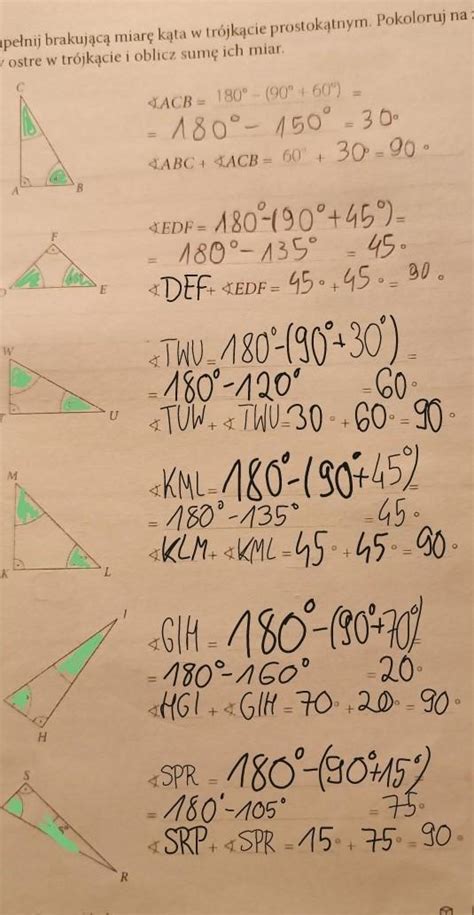 apełnij brakującą miarę kąta w trójkącie prostokątnym. Pokoloruj na
ostre w trójkącie i oblicz sumę ich miar.
C
A
B
∢ACB = 180° − (90° + 60°) =
= 180° − 150° = 30°
∢ABC + ∢ACB = 60° + 30° = 90°
F
E
∢EDF = 180° − (90° + 45°) =
= 180° − 135° = 45°
∢DEF + ∢EDF = 45° + 45° = 90°
W
U
∢TWU = 180° − (90° + 30°) =
= 180° − 120° = 60°
∢TUW + ∢TWU = 30° + 60° = 90°
M
K
L
∢KML = 180° − (90° + 45°) =
= 180° − 135° = 45°
∢KLM + ∢KML = 45° + 45° = 90°
I
H
∢GIH = 180° − (90° + 70°)
= 180° − 160° = 20°
∢HGI + ∢GIH = 70° + 20° = 90°
S
R
∢SPR = 180° − (90° + 15°)
= 180° − 105° = 75°
∢SRP + ∢SPR = 15° + 75° = 90°